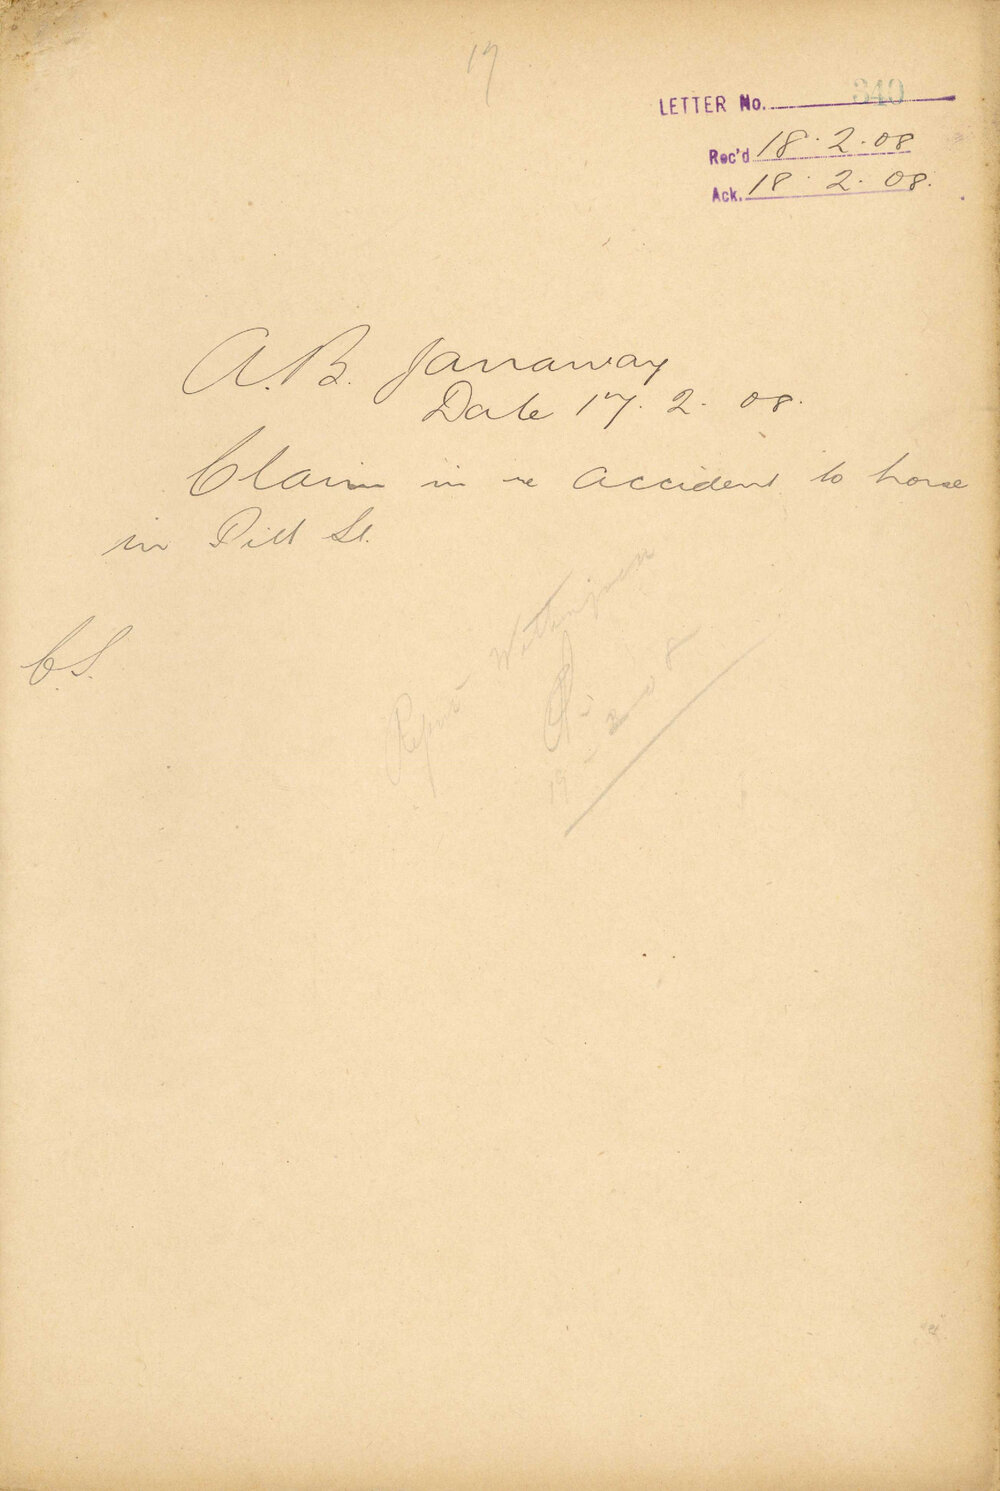 17
LETTER No. 340
Rec'd 18.2.08
Ack. 18.2.08.
A.B. Janaway
Date 17.2.08.
Claim in re accident to horse
in Pitt St.
C.S.
Report